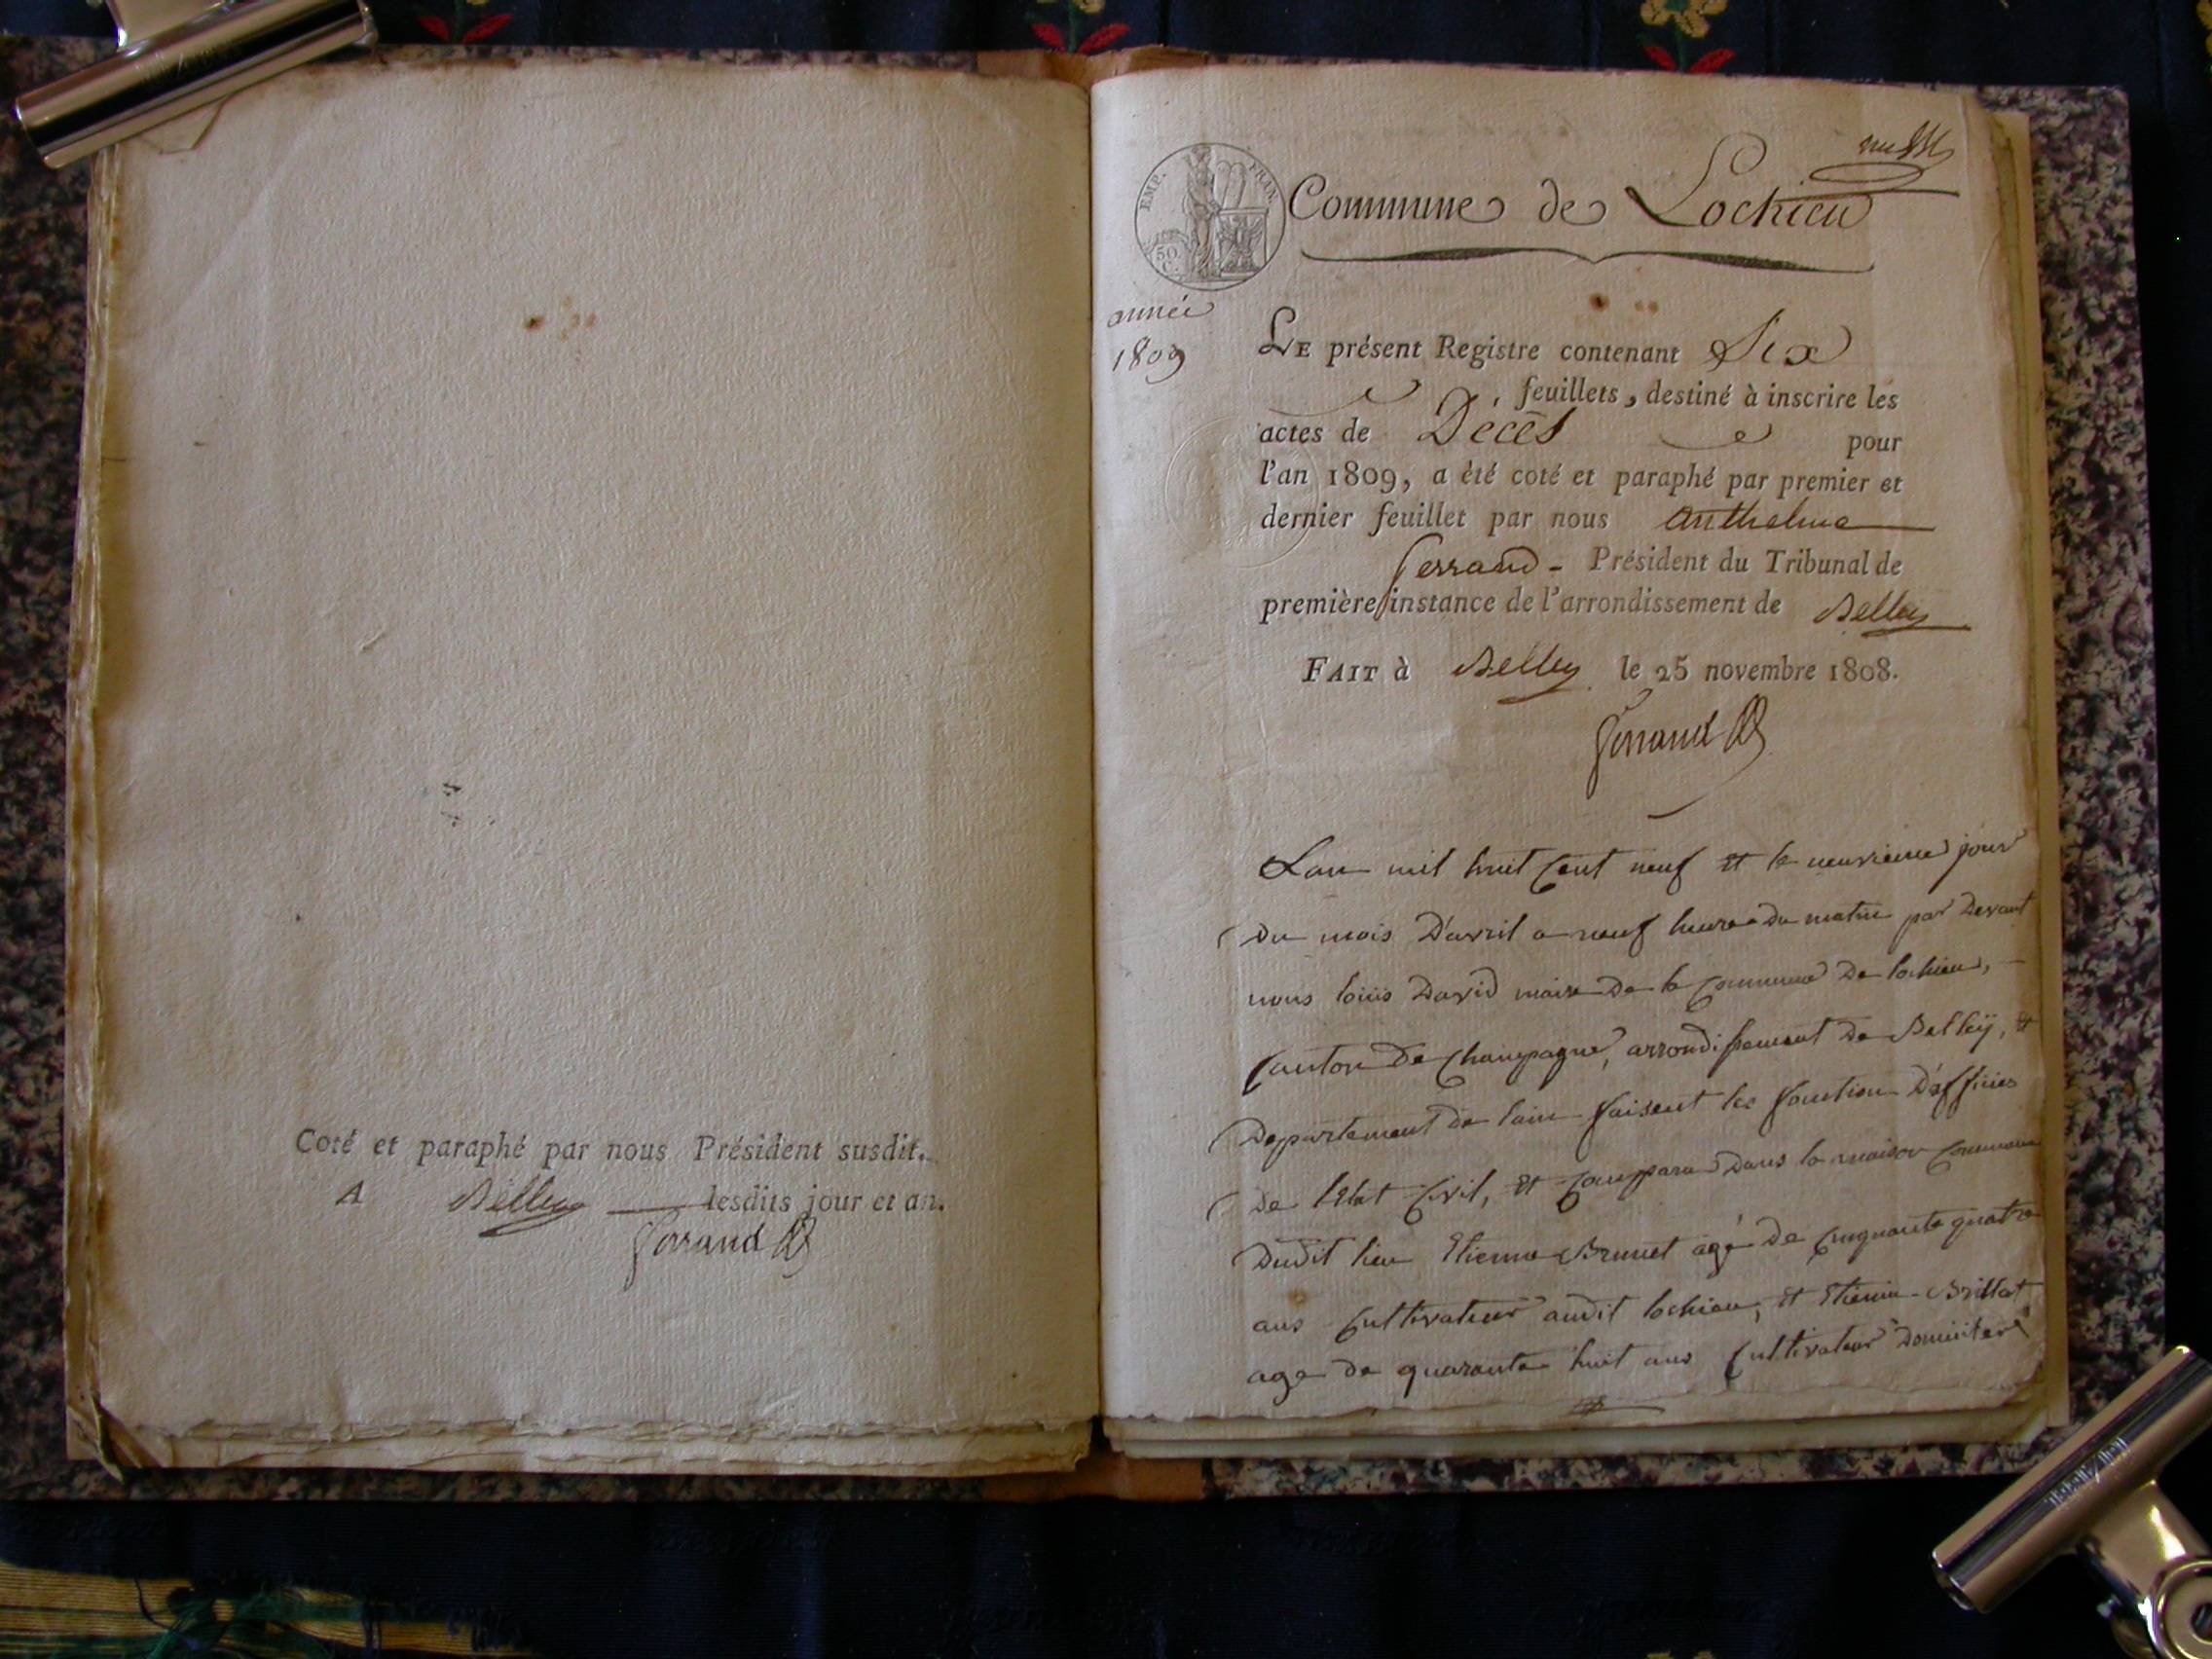 Coté et paraphé par nous Président susdit.
A Belley lesdits jour et an.
Ferrand
EMP. FRAN.
50 C.
Commune de Lochieu
année
1809
LE présent Registre contenant Six
feuillets, destiné à inscrire les
actes de Décès pour
l'an 1809, a été coté et paraphé par premier et
dernier feuillet par nous Anthelme
Ferrand - Président du Tribunal de
première instance de l'arrondissement de Belley
FAIT à Belley le 25 novembre 1808.
Ferrand
Lan mil huit Cent neuf et le neuvieme jour
Du mois D'avril a neuf heure Du matin par Devant
nous loüis David maire De la Commune De lochieu,
Canton De Champagne, arrondissement De Belleÿ, et
Departement de lain faisent les fonction D'officies
De l'Etat Civil, et Comparu Dans la maison Commune
Dudit lieu Etienne Brunet agé De Cinquante quatre
ans Cultivateur audit lochieu, et Etienne Brillat
age De quarante huit ans Cultivateur Domicilier